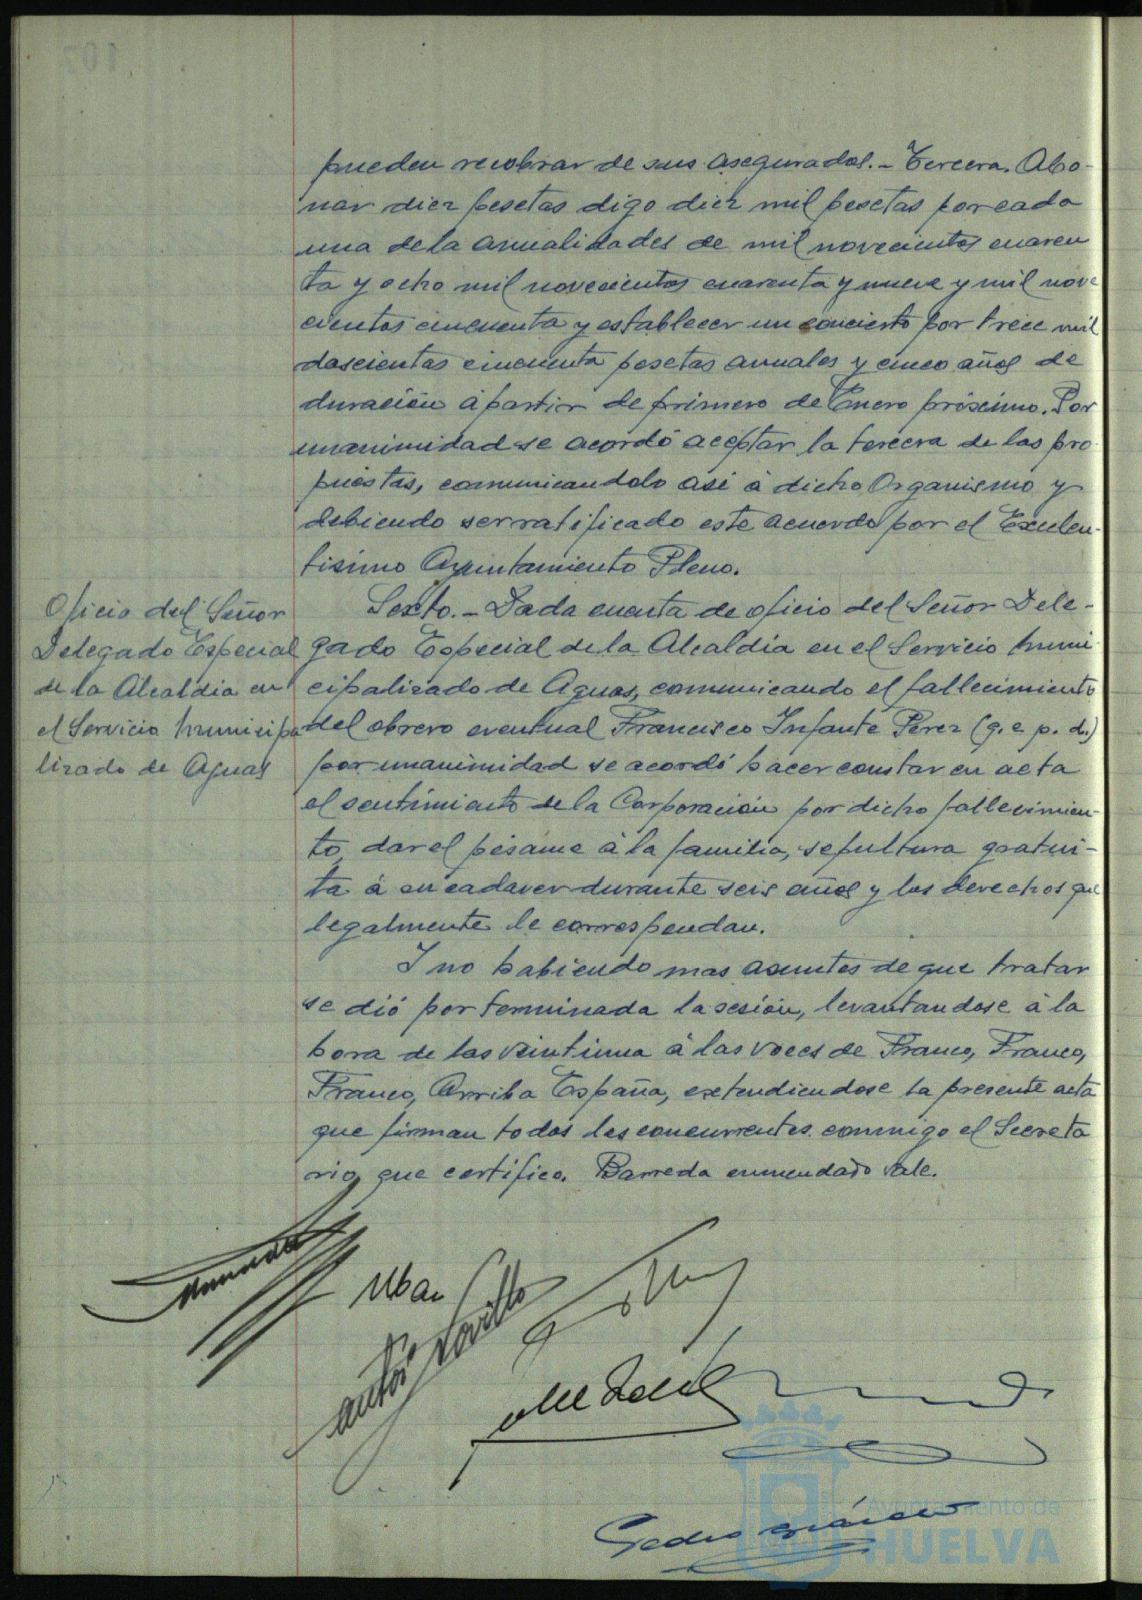 pueden recobrar de sus asegurados.- Tercera. Abo-
nar diez pesetas digo diez mil pesetas por cada
una de la anualidades de mil novecientos cuaren
ta y ocho mil novecientos cuarenta y nueve y mil nove
cientos cincuenta y establecer un concierto por trece mil
doscientas cincuenta pesetas anuales y cinco años de
duración á partir de primero de Enero próximo. Por
unanimidad se acordó aceptar la tercera de las pro-
puestas, comunicandolo asi á dicho Organismo y
debiendo ser ratificado este acuerdo por el Excelen-
tisimo Ayuntamiento Pleno.
Oficio del Señor
Delegado Especial
de la Alcaldia en
el Servicio Municipa
lizado de Aguas
Sexto.- Dada cuenta de oficio del Señor Dele-
gado Especial de la Alcaldia en el Servicio Muni-
cipalizado de Aguas, comunicando el fallecimiento
del obrero eventual Francisco Infante Perez (q. e. p. d.)
por unanimidad se acordó hacer constar en acta
el sentimiento de la Corporación por dicho fallecimien-
to, dar el pésame á la familia, sepultura gratui-
ta á su cadaver durante seis años y los derechos que
legalmente le correspondan.
Y no habiendo mas asuntos de que tratar
se dió por terminada la sesión, levantandose á la
hora de las veintiuna á las voces de Franco, Franco,
Franco, Arriba España, extendiendose la presente acta
que firman todos los concurrentes conmigo el Secreta
rio, que certifico. Barreda enmendado vale.
Antoº Novillo
Pedro
Ayuntamiento de
HUELVA